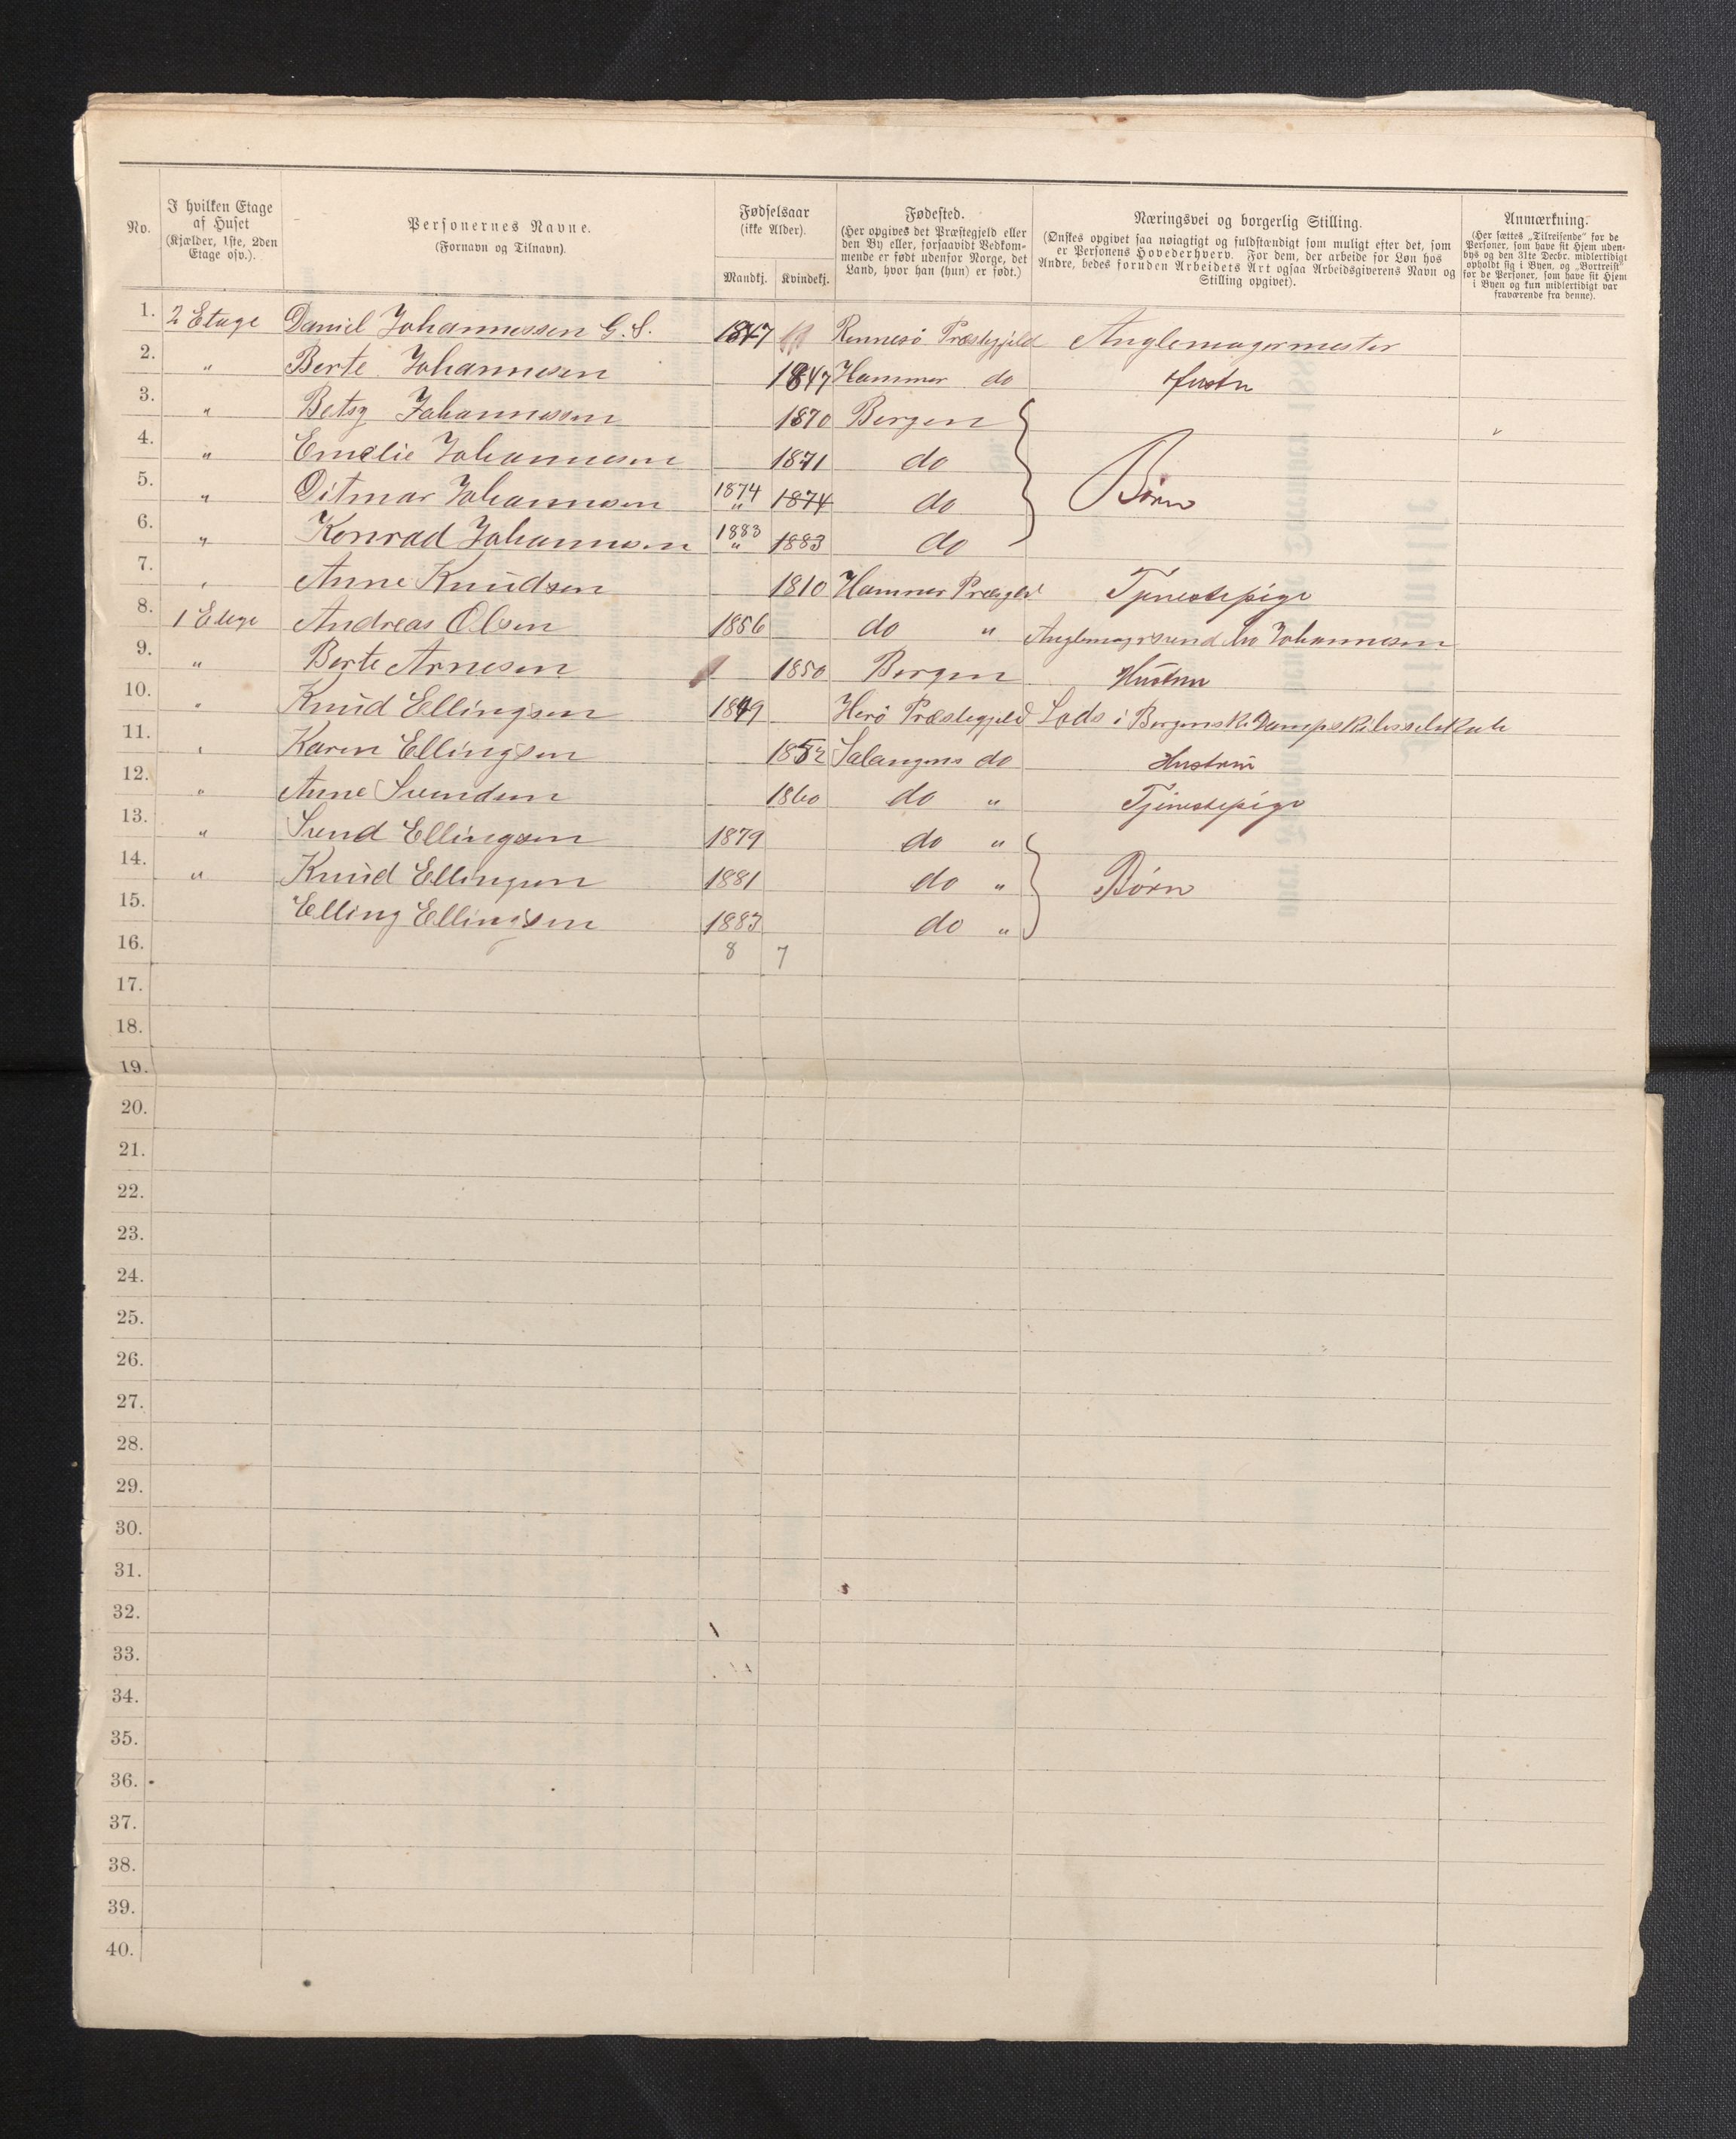 No.
I hvilken Etage af Huset (Kjælder, 1ste, 2den Etage osv.).
Personernes Navne. (Fornavn og Tilnavn).
Fødselsaar (ikke Alder).
Mandkj. Kvindekj.
Fødested. (Her opgives det Præstegjeld eller den By eller, forsaavidt Vedkommende er født udenfor Norge, det Land, hvor han (hun) er født.)
Næringsvei og borgerlig Stilling. (Ønskes opgivet saa nøiagtigt og fuldstændigt som muligt efter det, som er Personens Hovederhverv. For dem, der arbeide for Løn hos Andre, bedes foruden Arbeidets Art ogsaa Arbeidsgiverens Navn og Stilling opgivet).
Anmærkning. (Her sættes „Tilreisende" for de Personer, som have sit Hjem udenbys og den 31te Decbr. midlertidigt opholdt sig i Byen, og „Bortreist" for de Personer, som have sit Hjem i Byen og kun midlertidigt var fraværende fra denne).
1. 2 Etage Daniel Johannessen G. S. 1847 Rennesø Præstegjeld Anglemagermester
2. " Berte Johannesen 1847 Hammer do
3. " Betsy Johannesen 1870 Bergen
4. " Emelie Johannesen 1871 do Børn
5. " Ditmar Johannesen 1874 " 1874 do
6. " Konrad Johannesen 1883 " 1883 do
7. " Anne Knudsen 1810 Hammer Tjenestepige
8. 1 Etage Andreas Olsen 1856 do " Anglemagersvend ho Johannesen
9. " Berte Arnesen 1850 Bergen Hustru
10. " Knud Ellingsen 1849 Herø Præstegjeld Lods i Bergenske Dampskibsselskab
11. " Karen Ellingsen 1852 Salangens do Hustru
12. " Anne Svendsen 1860 do " Tjenestepige
13. " Svend Ellingsen 1879 do "
14. " Knud Ellingsen 1881 do " Børn
15. Elling Ellingsen 1883 do "
16. 8 7
17.
18.
19.
20.
21.
22.
23.
24.
25.
26.
27.
28.
29.
30.
31.
32.
33.
34.
35.
36.
37.
38.
39.
40.